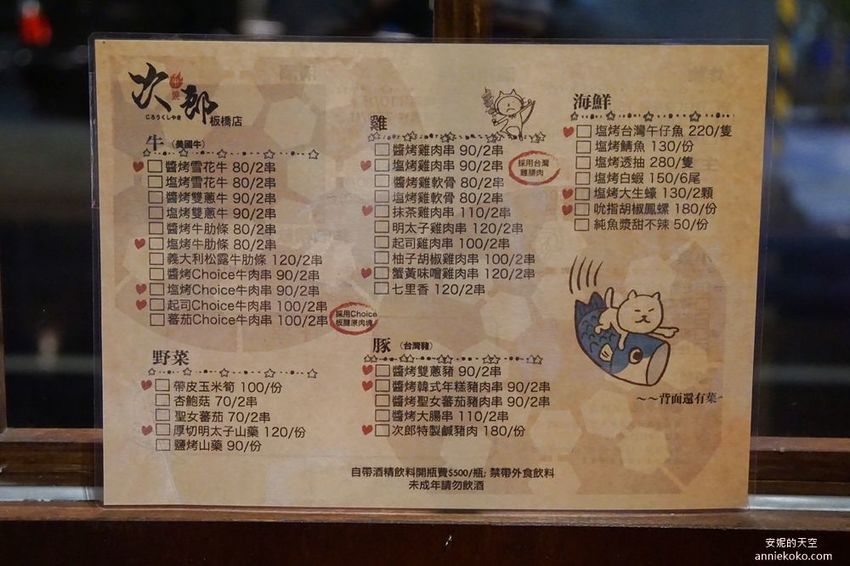 次郎
串燒
にろうくしやき
板橋店
牛 (美國牛)
醬烤雪花牛 80/2串
塩烤雪花牛 80/2串
醬烤雙蔥牛 90/2串
塩烤雙蔥牛 90/2串
醬烤牛肋條 80/2串
塩烤牛肋條 80/2串
義大利松露牛肋條 120/2串
醬烤Choice牛肉串 90/2串
塩烤Choice牛肉串 90/2串
起司Choice牛肉串 100/2串
蕃茄Choice牛肉串 100/2串
採用Choice
板腱原肉塊
野菜
帶皮玉米筍 100/份
杏鮑菇 70/2串
聖女蕃茄 70/2串
厚切明太子山藥 120/份
鹽烤山藥 90/份
雞
醬烤雞肉串 90/2串
塩烤雞肉串 90/2串
醬烤雞軟骨 80/2串
塩烤雞軟骨 80/2串
抹茶雞肉串 110/2串
明太子雞肉串 120/2串
起司雞肉串 100/2串
柚子胡椒雞肉串 100/2串
蟹黃味噌雞肉串 120/2串
七里香 120/2串
採用台灣
雞腿肉
豚 (台灣豬)
醬烤雙蔥豬 90/2串
醬烤韓式年糕豬肉串 90/2串
醬烤聖女蕃茄豬肉串 90/2串
醬烤大腸串 110/2串
次郎特製鹹豬肉 180/份
海鮮
塩烤台灣午仔魚 220/隻
塩烤鯖魚 130/份
塩烤透抽 280/隻
塩烤白蝦 150/6尾
塩烤大生蠔 130/2顆
吮指胡椒鳳螺 180/份
純魚漿甜不辣 50/份
~~背面還有菜~
自帶酒精飲料開瓶費$500/瓶; 禁帶外食飲料
未成年請勿飲酒
安妮的天空
anniekoko.com